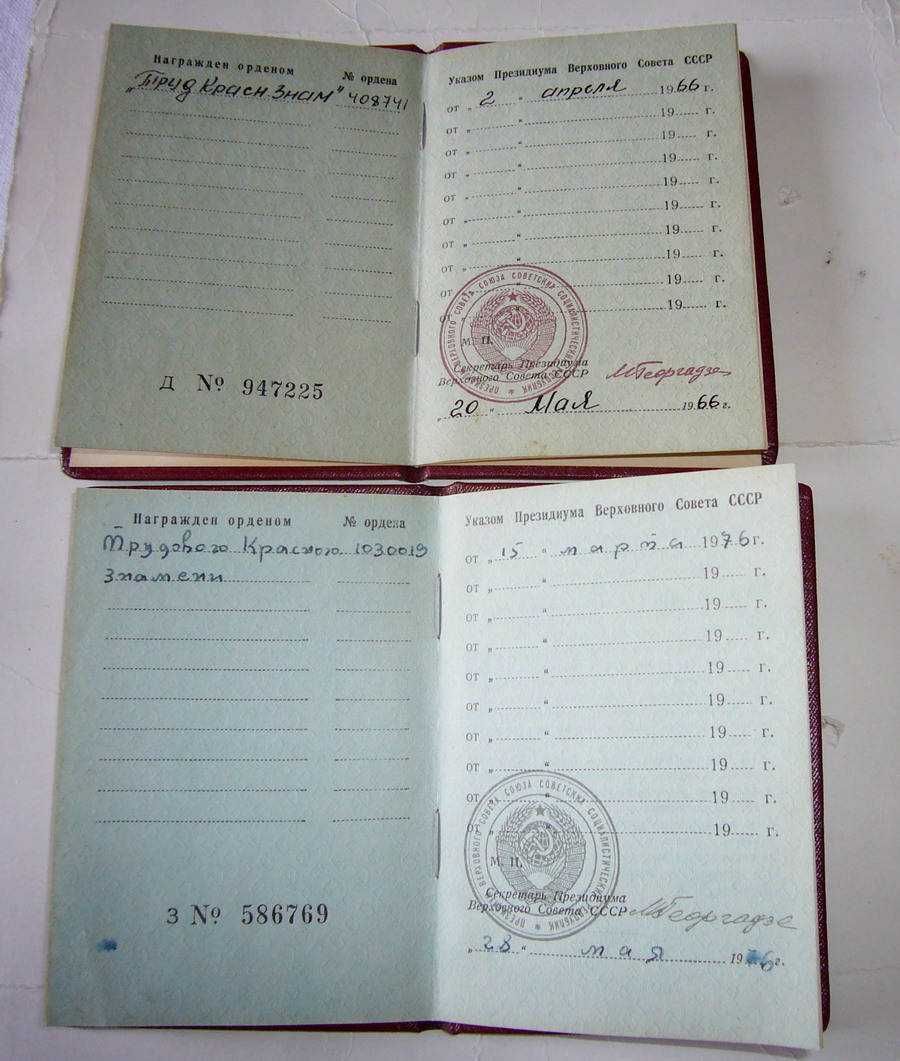 Награжден орденом № ордена
„Труд Красн Знам" 408741
Д № 947225
Указом Президиума Верховного Совета СССР
от „ 2 “ апреля 1966 г.
от „ “ 19 г.
от „ “ 19 г.
от „ “ 19 г.
от „ “ 19 г.
от „ “ 19 г.
от „ “ 19 г.
от „ “ 19 г.
от „ “ 19 г.
от „ “ 19 г.
ПРЕЗИДИУМ ВЕРХОВНОГО СОВЕТА СОЮЗА СОВЕТСКИХ СОЦИАЛИСТИЧЕСКИХ РЕСПУБЛИК
М. П.
Секретарь Президиума
Верховного Совета СССР МГеоргадзе
„ 20 “ Мая 1966 г.
Награжден орденом № ордена
Трудового Красного 1030019
Знамени
З № 586769
Указом Президиума Верховного Совета СССР
от „ 15 “ марта 1976 г.
от „ “ 19 г.
от „ “ 19 г.
от „ “ 19 г.
от „ “ 19 г.
от „ “ 19 г.
от „ “ 19 г.
от „ “ 19 г.
от „ “ 19 г.
от „ “ 19 г.
ПРЕЗИДИУМ ВЕРХОВНОГО СОВЕТА СОЮЗА СОВЕТСКИХ СОЦИАЛИСТИЧЕСКИХ РЕСПУБЛИК
М. П.
Секретарь Президиума
Верховного Совета СССР МГеоргадзе
„ 28 “ мая 1976 г.